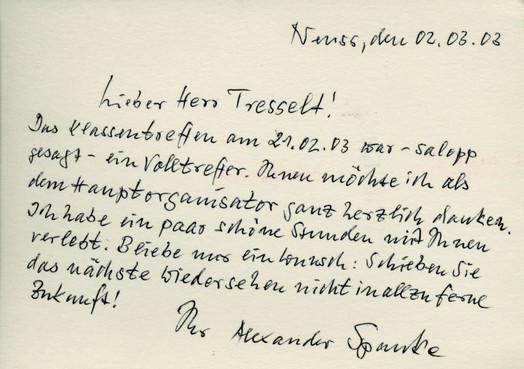 Neuss, den 02.03.03
Lieber Herr Tresselt!
Das Klassentreffen am 21.02.03 war - salopp
gesagt - ein Volltreffer. Ihnen möchte ich als
dem Hauptorganisator ganz herzlich danken.
Ich habe ein paar schöne Stunden mit Ihnen
verlebt. Bliebe nur ein Wunsch: Schieben Sie
das nächste Wiedersehen nicht in allzu ferne
Zukunft!
Ihr Alexander